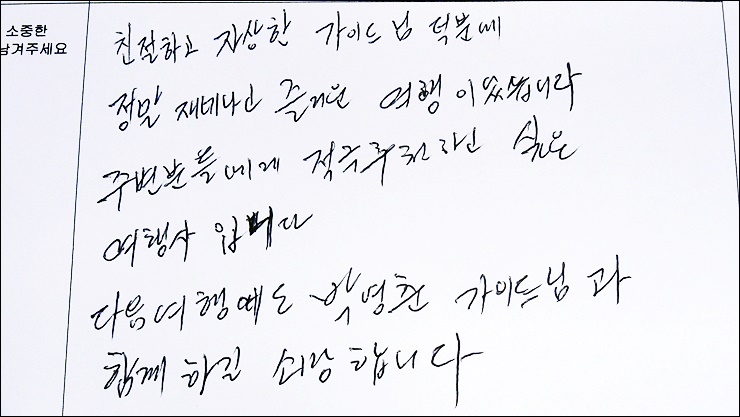 소중한
남겨주세요
친절하고 자상한 가이드님 덕분에
정말 재미나고 즐거운 여행이었습니다
주변분들에게 적극추천하고 싶은
여행사 입니다
다음여행에도 박영환 가이드님과
함께 하길 희망합니다